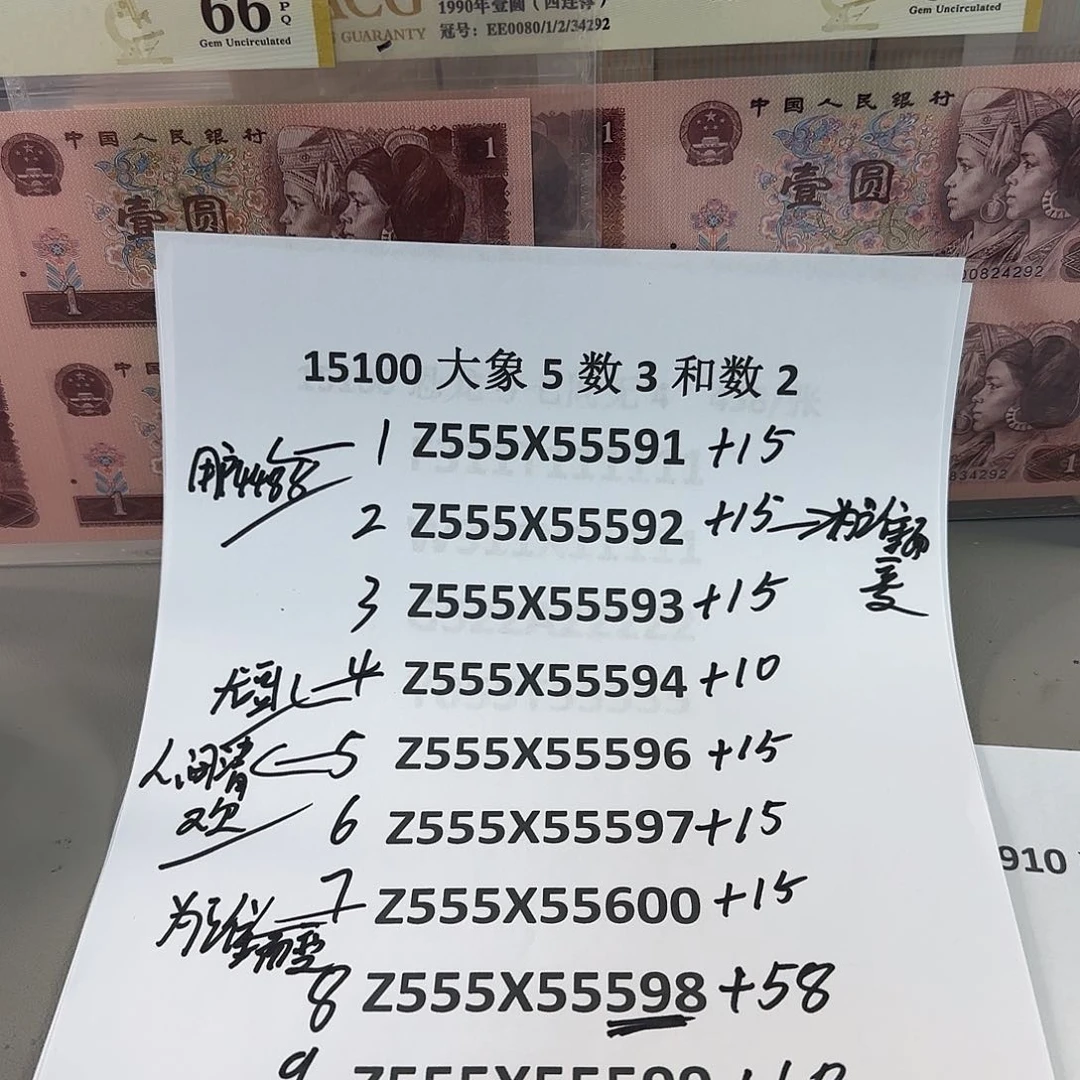 66 PQ
Gem Uncirculated
ACG
GUARANTY
1990年壹圓（四连体）
冠号：EE0080/1/2/34292
Gem Uncirculated
中国人民银行
壹圆
1
1
中国人民银行
壹圆
1
00824292
中国
1
834292
1
15100 大象 5 数 3 和数 2
1 Z555X55591 +15
用户4488
2 Z555X55592 +15
为谁而变
3 Z555X55593 +15
4 Z555X55594 +10
人间清欢
5 Z555X55596 +15
6 Z555X55597 +15
为谁而变
7 Z555X55600 +15
8 Z555X55598 +58
9 Z555X55599 +10
910